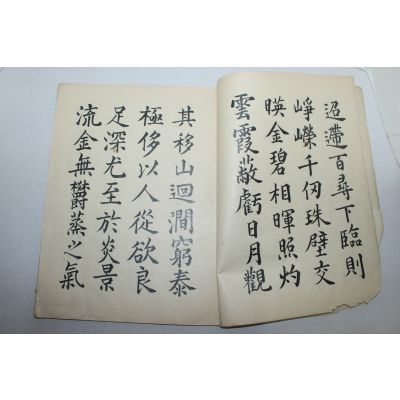 迢遰百尋下臨則
崢嶸千仞珠壁交
暎金碧相暉照灼
雲霞蔽虧日月觀
其移山迴澗窮泰
極侈以人從欲良
足深尤至於炎景
流金無鬱蒸之氣